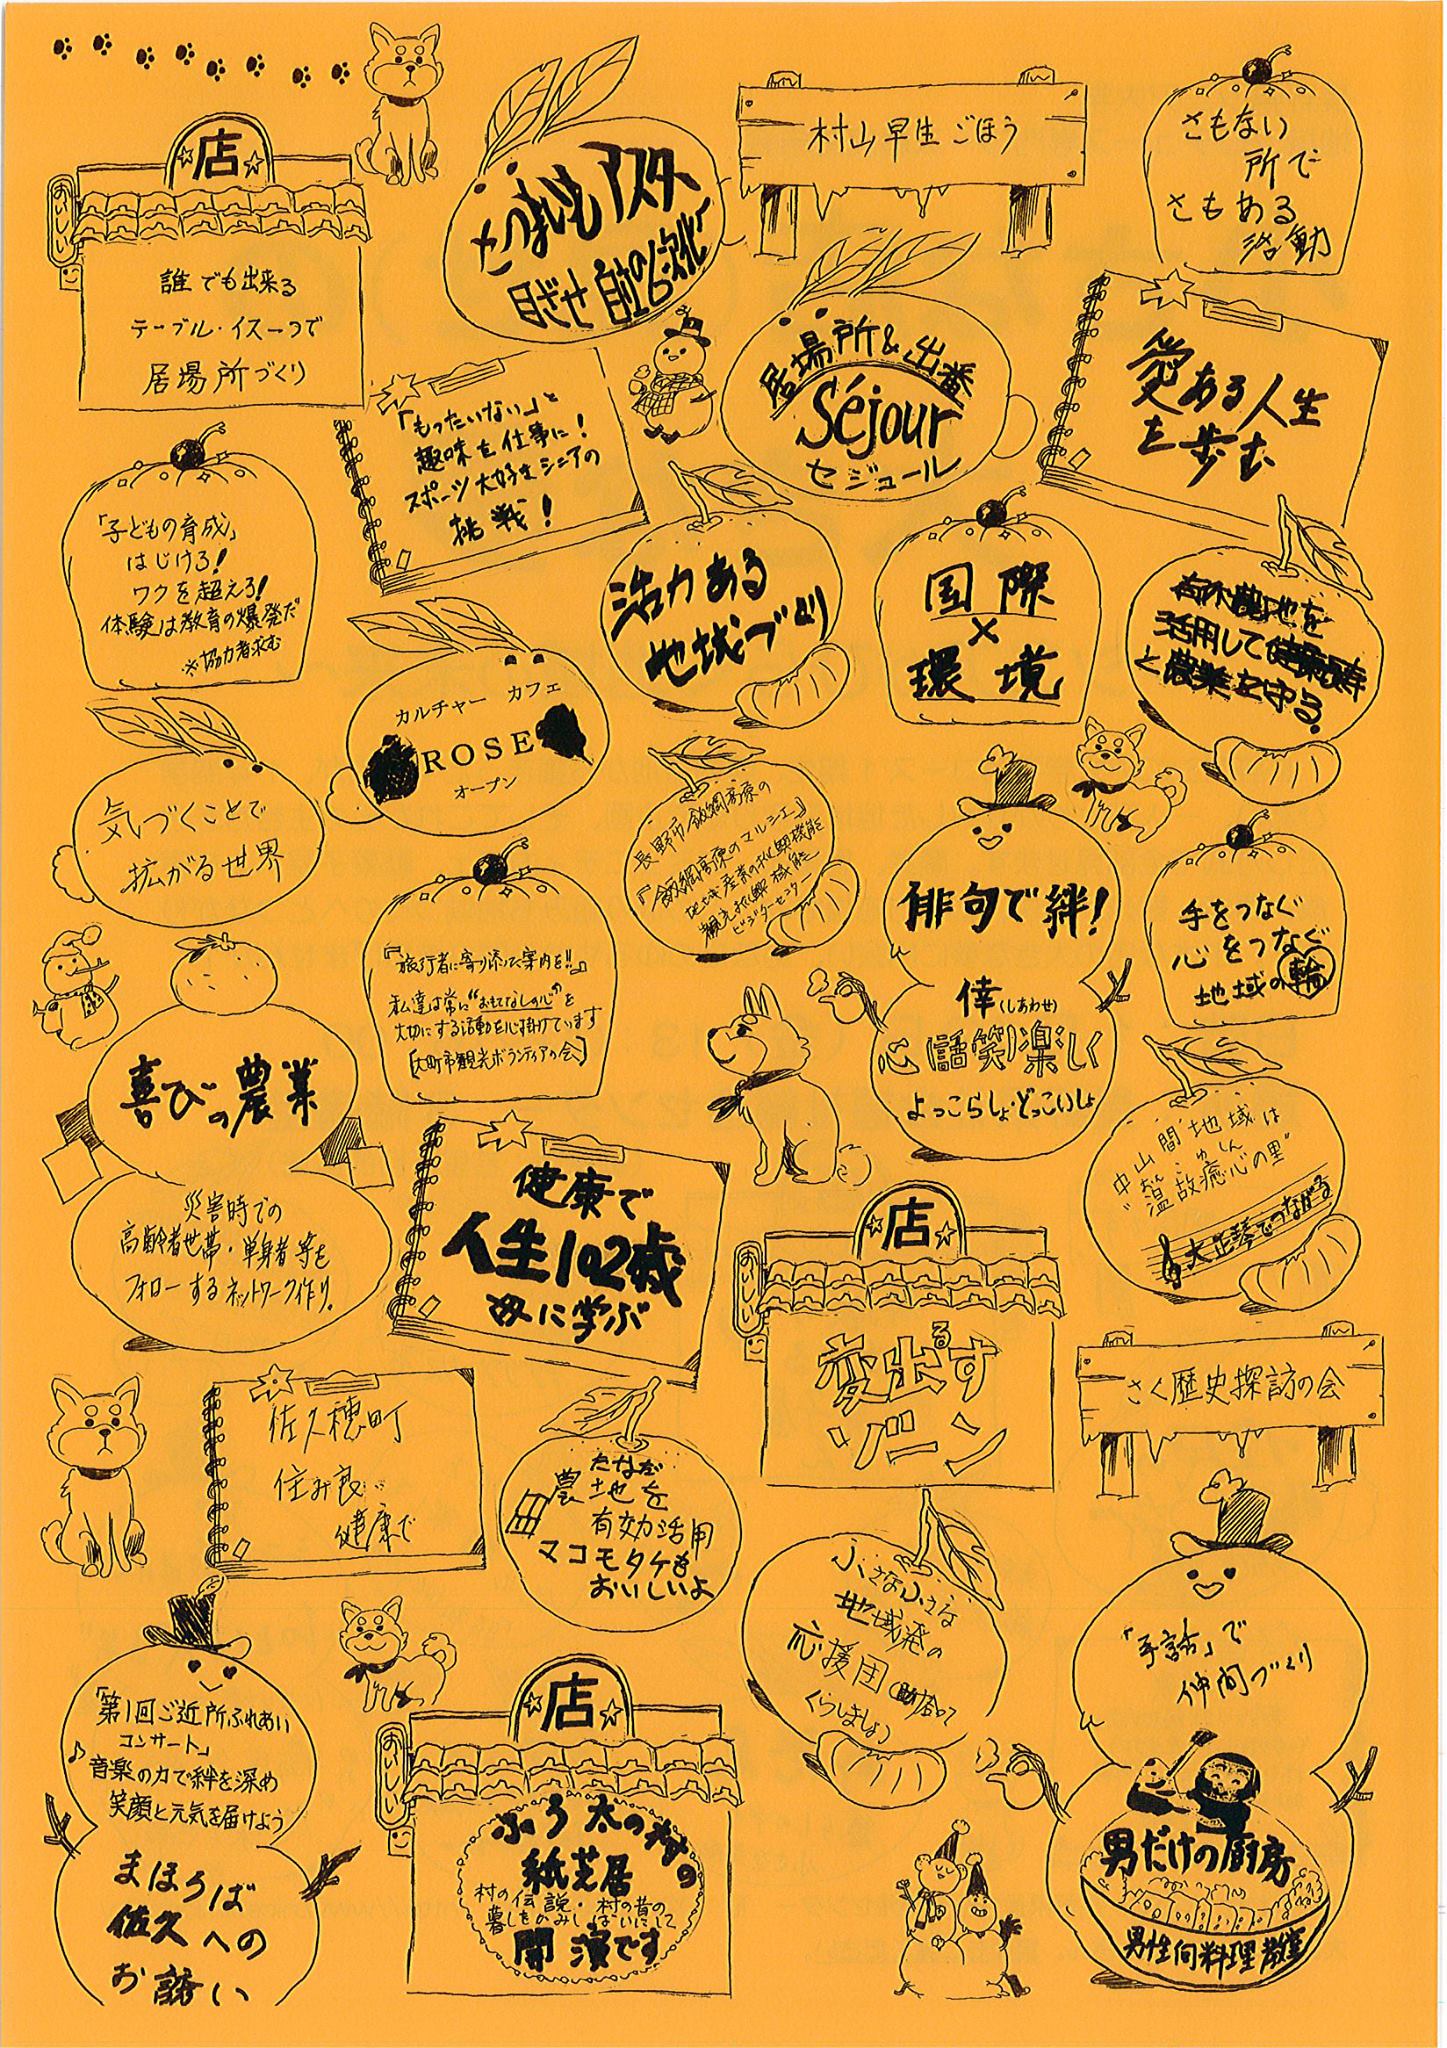 店
おいしい
誰でも出来る
テーブル・イス一つで
居場所づくり
さつまいもアスター
目ざせ 自立の6次化へ
村山早生ごぼう
さもない
所で
さもある
活動
「もったいない」と
趣味を仕事に!
スポーツ大好きシニアの
挑戦!
居場所&出番
Séjour
セジュール
愛ある人生
を歩む
「子どもの育成」
はじけろ!
ワクを超えろ!
体験は教育の爆発だ
※協力者求む
活力ある
地域づくり
国際
×
環境
活用して健康長寿
と農業を守る。
カルチャー カフェ
ROSE
オープン
気づくことで
拡がる世界
長野市飯綱高原の
『飯綱高原のマルシェ』
地域産業の振興機能
観光振興機能
ビジターセンター
俳句で絆!
倖(しあわせ)
心話笑楽しく
よっこらしょ・どっこいしょ
手をつなぐ
心をつなぐ
地域の輪
『旅行者に寄り添った案内を!!』
私達は常に“おもてなしの心”を
大切にする活動を心掛けています
[大町市観光ボランティアの会]
喜びの農業
災害時での
高齢者世帯・単身者等を
フォローするネットワーク作り。
健康で
人生102歳
母に学ぶ
中山間地域は
“温故癒心の里”
大正琴でつながる
店
おいしい
変出するす
ゾーン
さく歴史探訪の会
佐久穂町
住み良い
健康で
たなだ
農地を
有効活用
マコモタケも
おいしいよ
小さな小さな
地域発の
応援団(助け合って
くらしましょう)
「手話」で
仲間づくり
男だけの厨房
男性向料理教室
「第1回ご近所ふれあい
コンサート」
音楽の力で絆を深め
笑顔と元気を届けよう
まほろば
佐久への
お誘い
店
おいしい
ふう太の村の
紙芝居
村の伝説・村の昔の
暮しをかみしばいにして
開演です